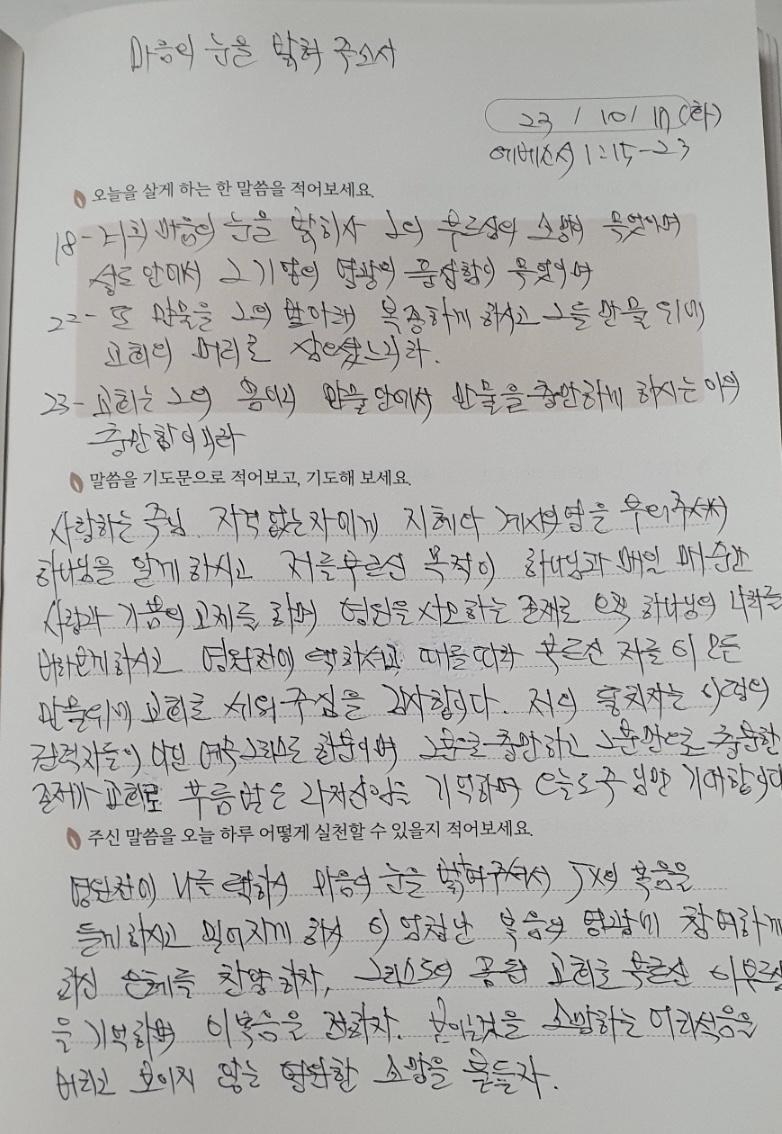 마음의 눈을 밝혀 주소서
23 / 10 / 17 (화)
에베소서 1:15-23
오늘을 살게 하는 한 말씀을 적어보세요.
18- 너희 마음의 눈을 밝히사 그의 부르심의 소망이 무엇이며
성도 안에서 그 기업의 영광의 풍성함이 무엇이며
22- 또 만물을 그의 발아래 복종하게 하시고 그를 만물 위에
교회의 머리로 삼으셨느니라.
23- 교회는 그의 몸이니 만물 안에서 만물을 충만하게 하시는 이의
충만함이니라
말씀을 기도문으로 적어보고, 기도해 보세요.
사랑하는 주님 자격없는자에게 지혜와 계시의영을 부어주셔서
하나님을 알게하시고 저를부르신 목적이 하나님과 매일 매순간
사랑과 기쁨의 교제를 하며 영원을 사모하는 존재로 오직 하나님의 나라를
바라보게하시고 영원전에 택하시고 때를따라 부르신 저를 이 모든
만물위에 교회로 세워주심을 감사합니다. 저의 통치자는 이땅의
권력자들이 아닌 예수그리스도 한분이며 그분을 충만하고 그분만으로 충분한
존재가 교회로 부름받은 나자신임을 기억하며 오늘도 주님만 기대합니다
주신 말씀을 오늘 하루 어떻게 실천할 수 있을지 적어보세요.
영원전에 나를 택하셔 마음의 눈을 밝혀주셔서 JX의 복음을
듣게하시고 믿어지게 하셔 이 엄청난 복음의 영광에 참여하게
하신 은혜를 찬양하자, 그리스도의 몸된 교회로 부르신 이부르심
을 기억하며 이복음을 전하자. 보이는것을 소망하는 어리석음을
버리고 보이지 않는 영원한 소망을 붙들자.